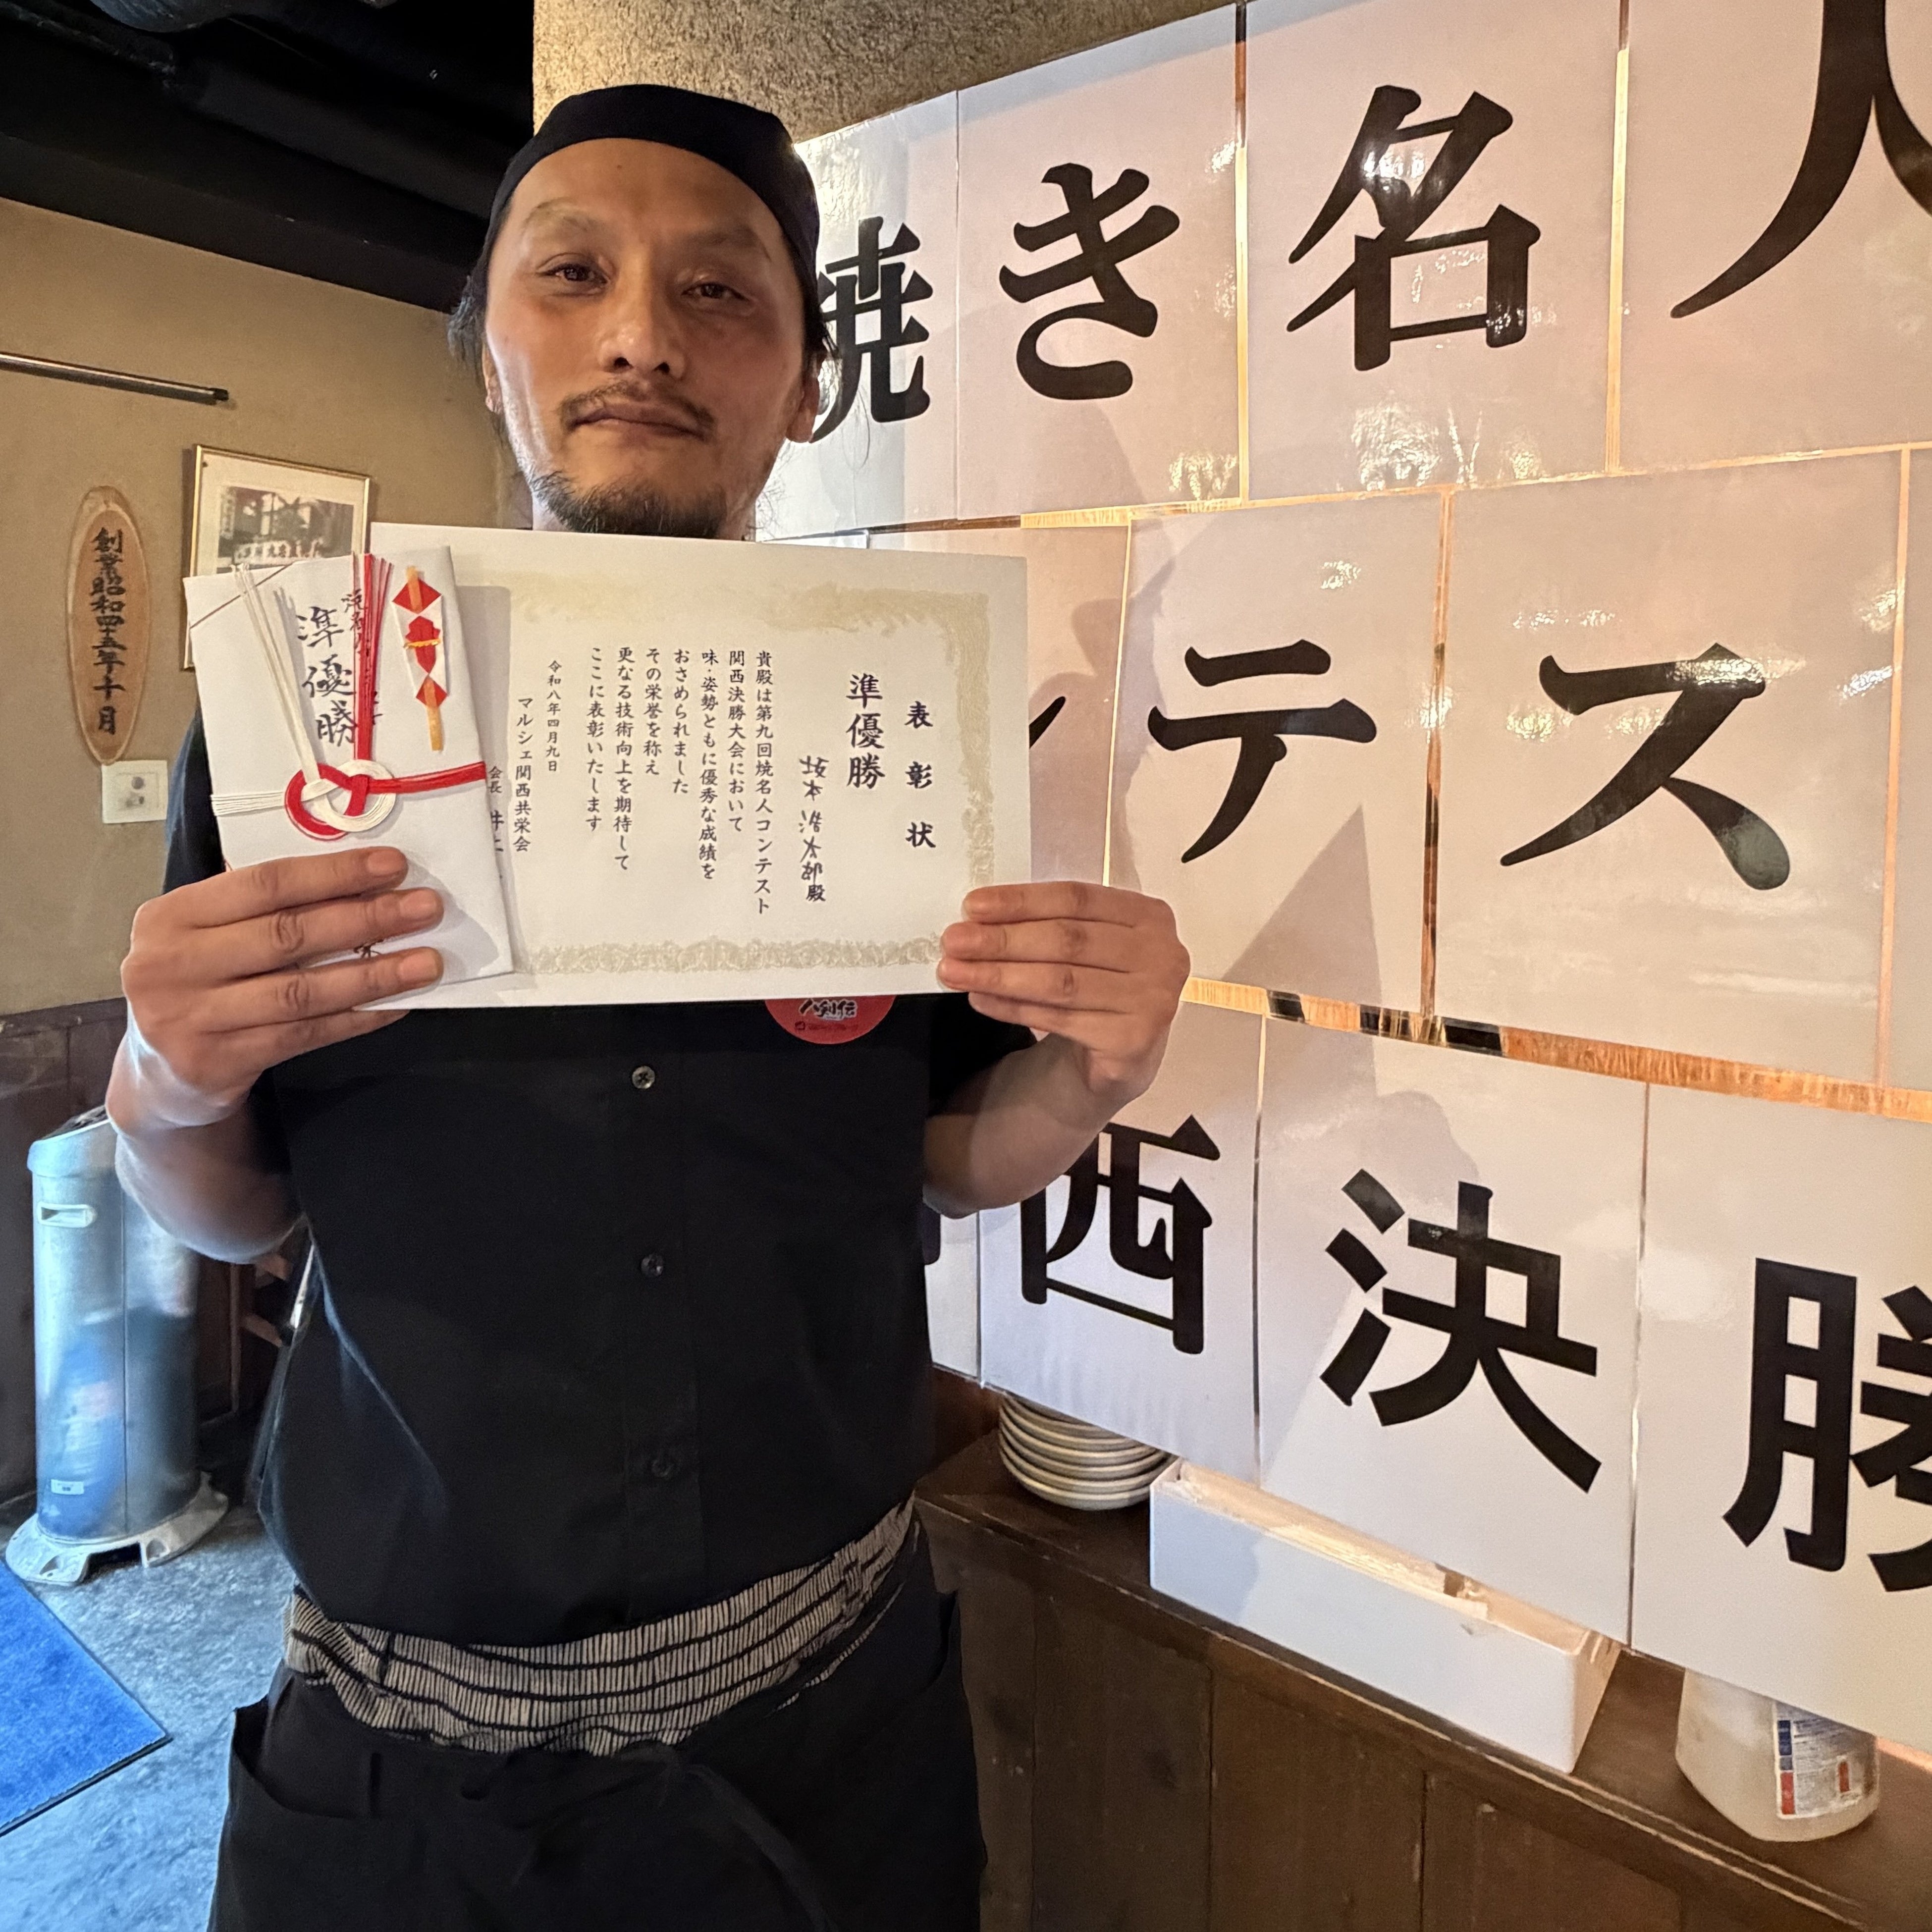 焼き名人
ンテス
西決勝
創業昭和四十五年十月
準優勝
表彰状
準優勝
坂本浩太郎殿
貴殿は第九回焼名人コンテスト
関西決勝大会において
味・姿勢ともに優秀な成績を
おさめられました
その栄誉を称え
更なる技術向上を期待して
ここに表彰いたします
令和八年四月九日
マルシェ関西共栄会
会長 井上
八剣伝